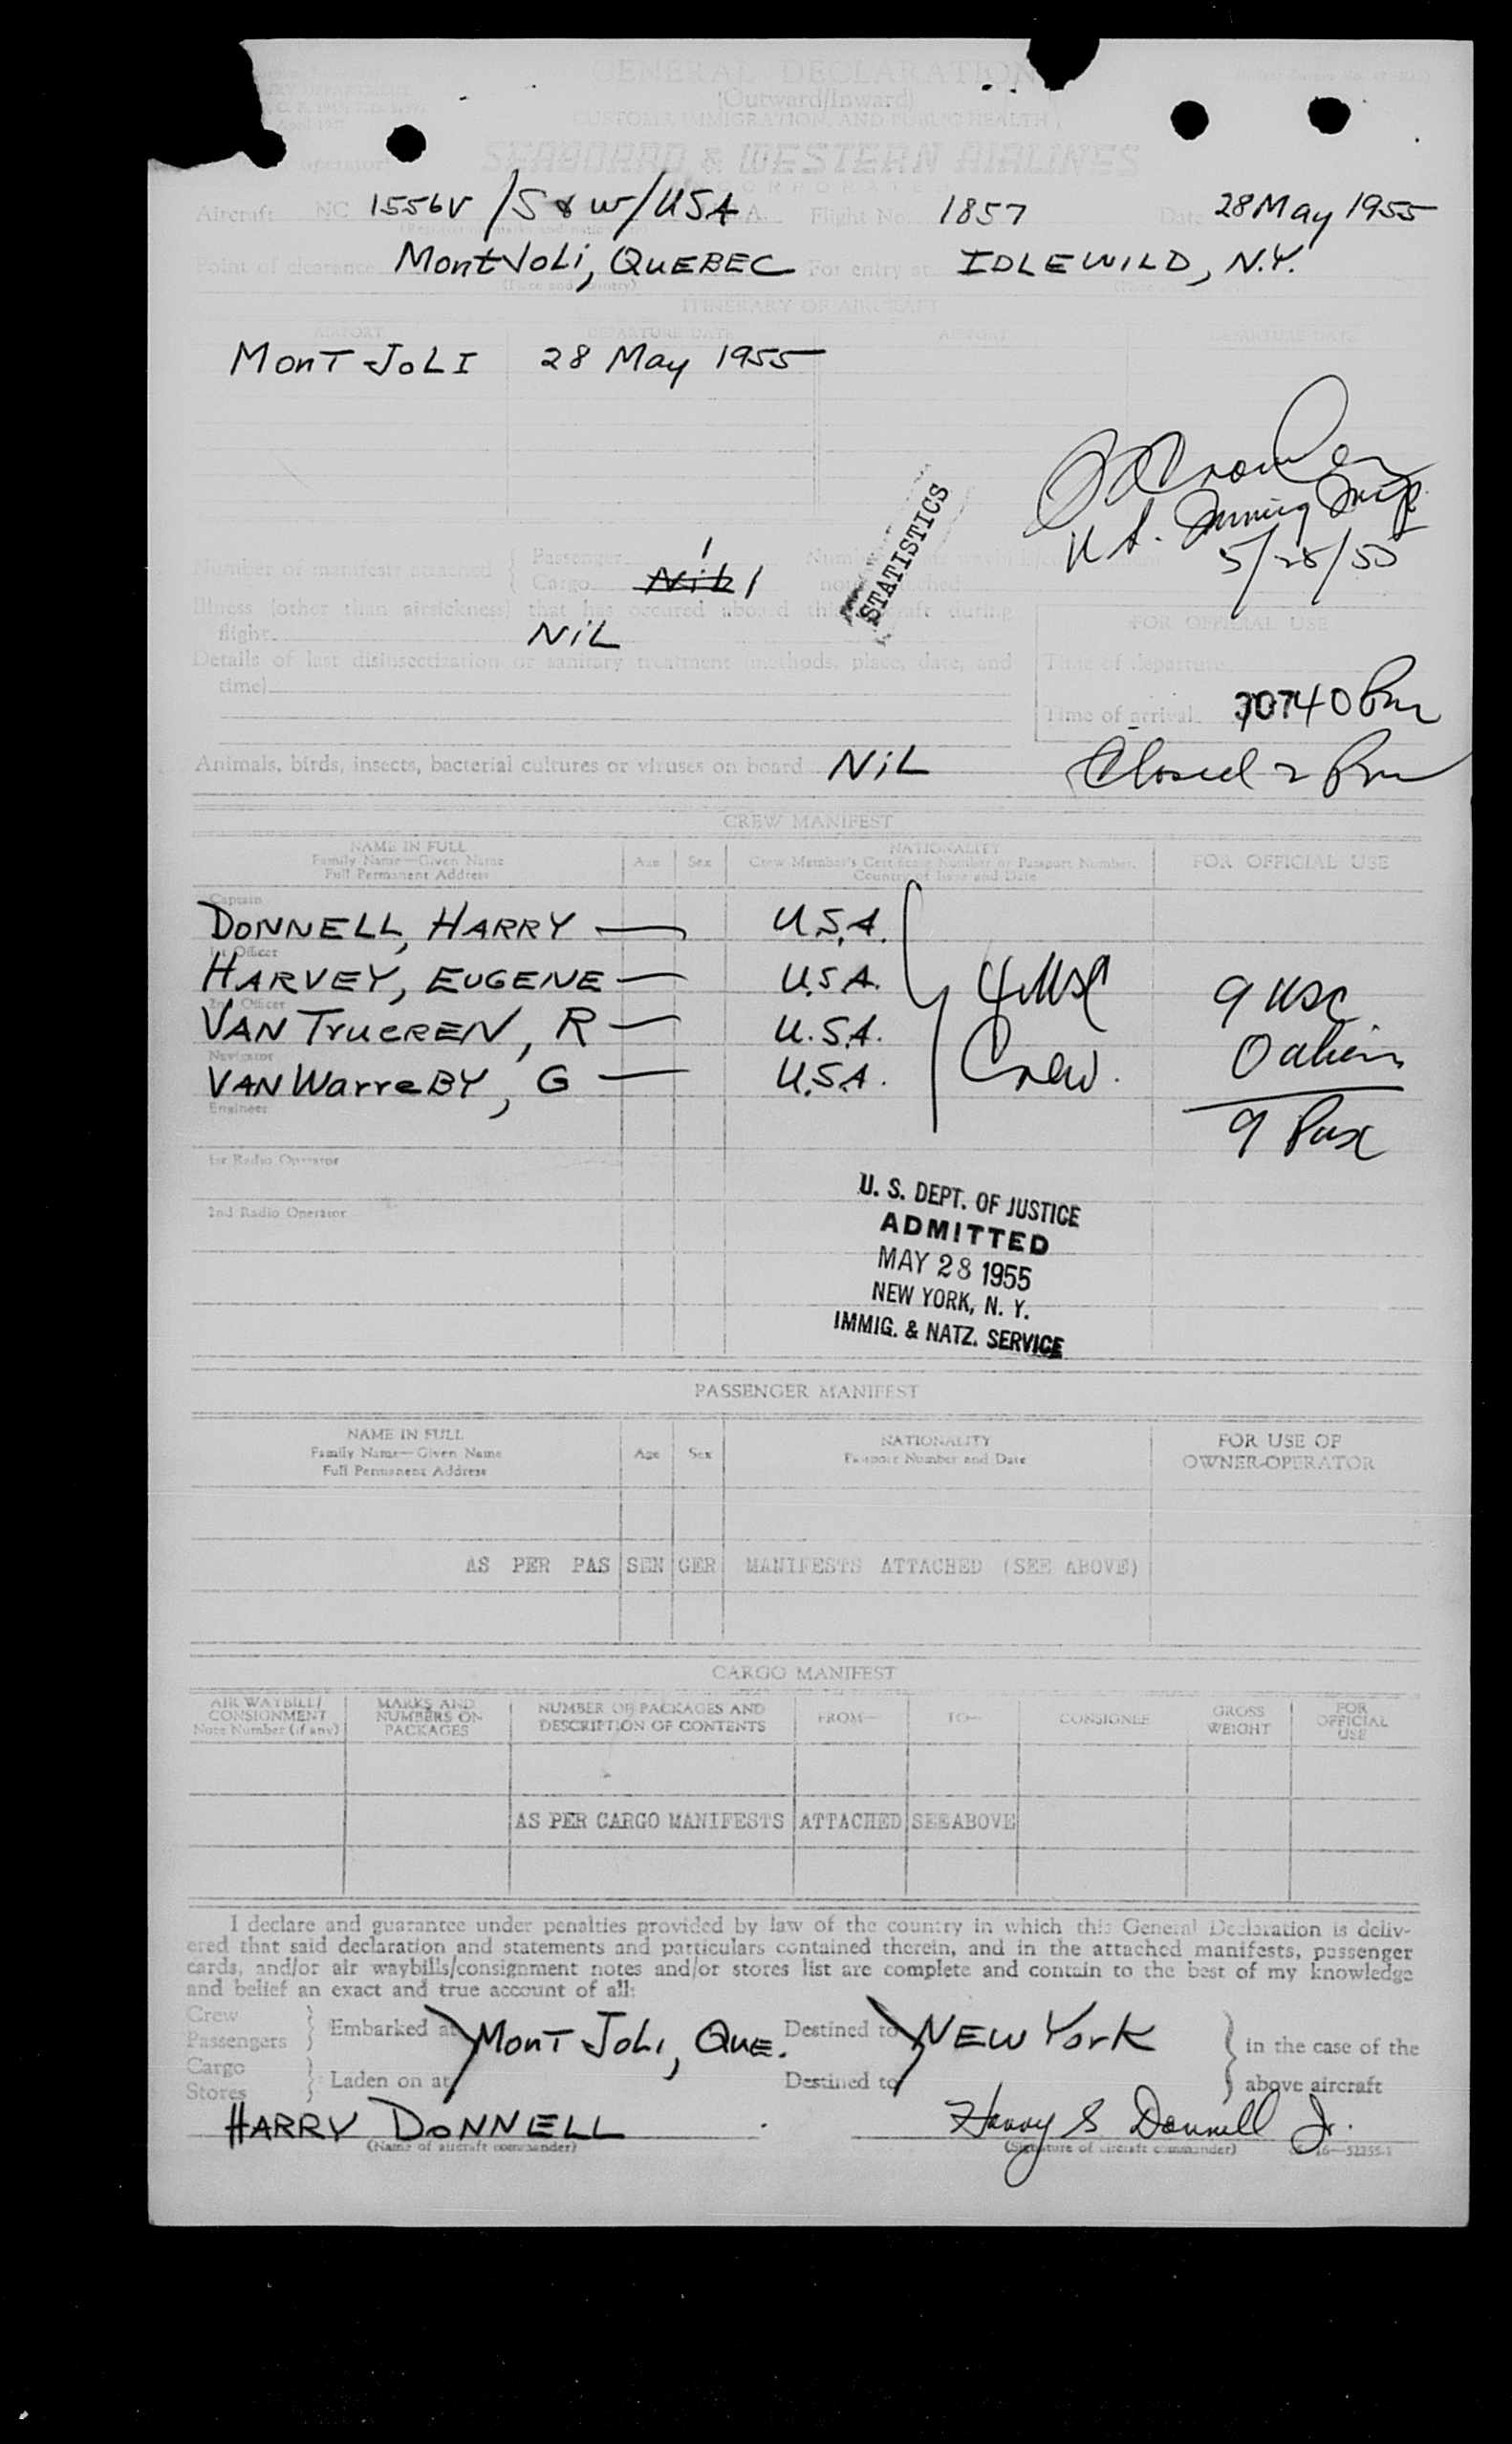 GENERAL DECLARATION
(Outward/Inward)
CUSTOMS, IMMIGRATION, AND PUBLIC HEALTH
SEABOARD & WESTERN AIRLINES
INCORPORATED
Aircraft NC 1556V /S & W/USA Flight No. 1857 Date 28 May 1955
Point of clearance Mont Joli, QUEBEC For entry at IDLEWILD, N.Y.
(Place and country)
ITINERARY OF AIRCRAFT
AIRPORT DEPARTURE DATE AIRPORT DEPARTURE DATE
MONT JOLI 28 May 1955
U.S. Immig Insp.
5/28/55
STATISTICS
Number of manifests attached { Passenger 1
Cargo Nil 1
Illness (other than airsickness) that has occured aboard this aircraft during
flight NiL
FOR OFFICIAL USE
Details of last disinsectization or sanitary treatment (methods, place, date, and
time)
Time of departure
Time of arrival 0740 Pm
Animals, birds, insects, bacterial cultures or viruses on board NiL
Closed 2 Pm
CREW MANIFEST
NAME IN FULL
Family Name—Given Name
Full Permanent Address
Age Sex
NATIONALITY
Crew Member's Certificate Number or Passport Number,
Country of Issue and Date
FOR OFFICIAL USE
Captain
DONNELL, HARRY — U.S.A.
1st Officer
HARVEY, EUGENE — U.S.A. 4 USC 9 USC
2nd Officer
VAN TrucREN, R — U.S.A. Crew. 0 alien
Navigator
VAN WarreBY, G — U.S.A. 9 Pax
Engineer
1st Radio Operator
2nd Radio Operator
U. S. DEPT. OF JUSTICE
ADMITTED
MAY 28 1955
NEW YORK, N. Y.
IMMIG. & NATZ. SERVICE
PASSENGER MANIFEST
NAME IN FULL
Family Name—Given Name
Full Permanent Address
Age Sex
NATIONALITY
Passport Number and Date
FOR USE OF
OWNER-OPERATOR
AS PER PAS SEN GER MANIFESTS ATTACHED (SEE ABOVE)
CARGO MANIFEST
AIR WAYBILL/
CONSIGNMENT
Note Number (if any)
MARKS AND
NUMBERS ON
PACKAGES
NUMBER OF PACKAGES AND
DESCRIPTION OF CONTENTS
FROM— TO— CONSIGNEE
GROSS
WEIGHT
FOR
OFFICIAL
USE
AS PER CARGO MANIFESTS ATTACHED SEE ABOVE
I declare and guarantee under penalties provided by law of the country in which this General Declaration is deliv-
ered that said declaration and statements and particulars contained therein, and in the attached manifests, passenger
cards, and/or air waybills/consignment notes and/or stores list are complete and contain to the best of my knowledge
and belief an exact and true account of all:
Crew
Passengers } Embarked at MONT JOLI, QUE. Destined to NEW York } in the case of the
Cargo
Stores } Laden on at Destined to above aircraft
HARRY DONNELL Harry S Donnell Jr.
(Name of aircraft commander) (Signature of aircraft commander) 16—52255-1